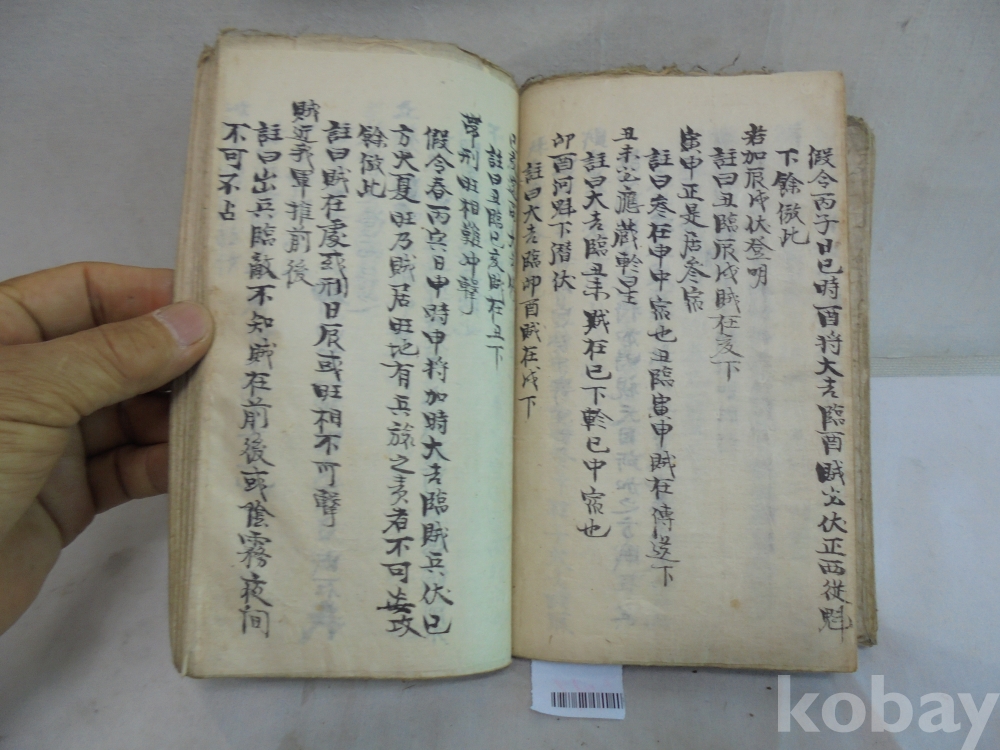 假令丙子日巳時酉将大吉臨酉賊必伏正西從魁
下餘倣此
若加辰戌伏登明
註曰丑臨辰戌賊在亥下
寅申正是居參宿
註曰參在申申宿也丑臨寅申賊在傳送下
丑未必應藏軫星
註曰大吉臨丑未賊在巳下軫巳中宿也
卯酉河魁下潛伏
註曰大吉臨卯酉賊在戌下
註曰丑臨巳亥賊在丑下
帶刑旺相難冲擊
假令春丙寅日申時申将加時大吉臨賊兵伏巳
方火夏旺乃賊居旺地有兵旅之責者不可妄攻
餘倣此
註曰賊在處或刑日辰或旺相不可擊
賊近我軍推前後
註曰出兵臨敵不知賊在前後或陰霧夜间
不可不占
kobay